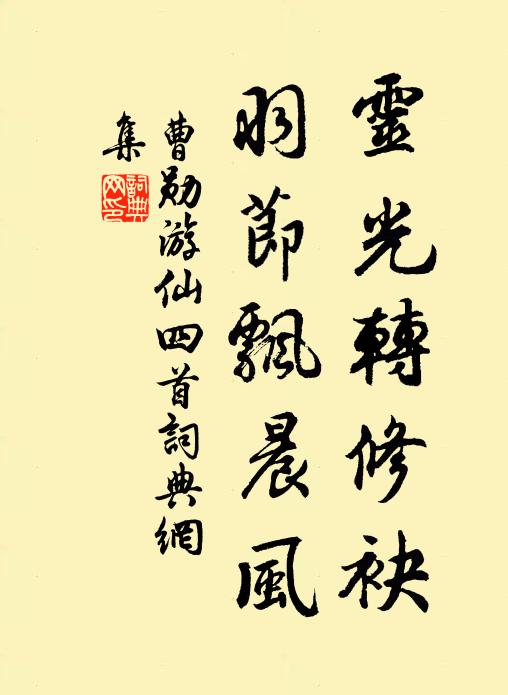 靈光轉修袂
羽節飄晨風
曹勛游仙四首詞典網
集
詞典網印